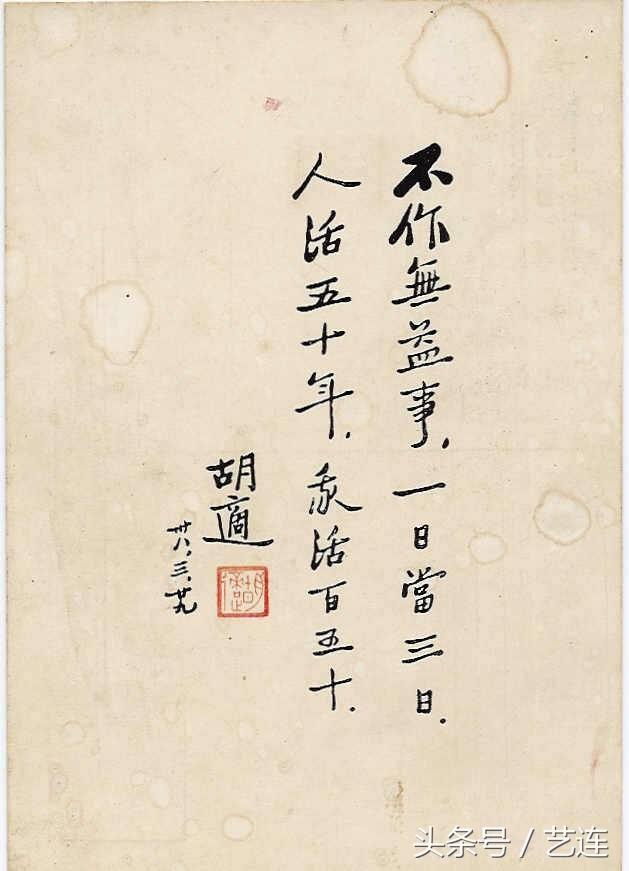 不作無益事,一日當三日.
人活五十年,我活百五十.
胡適
卅八,三,廿九
头条号 / 艺连